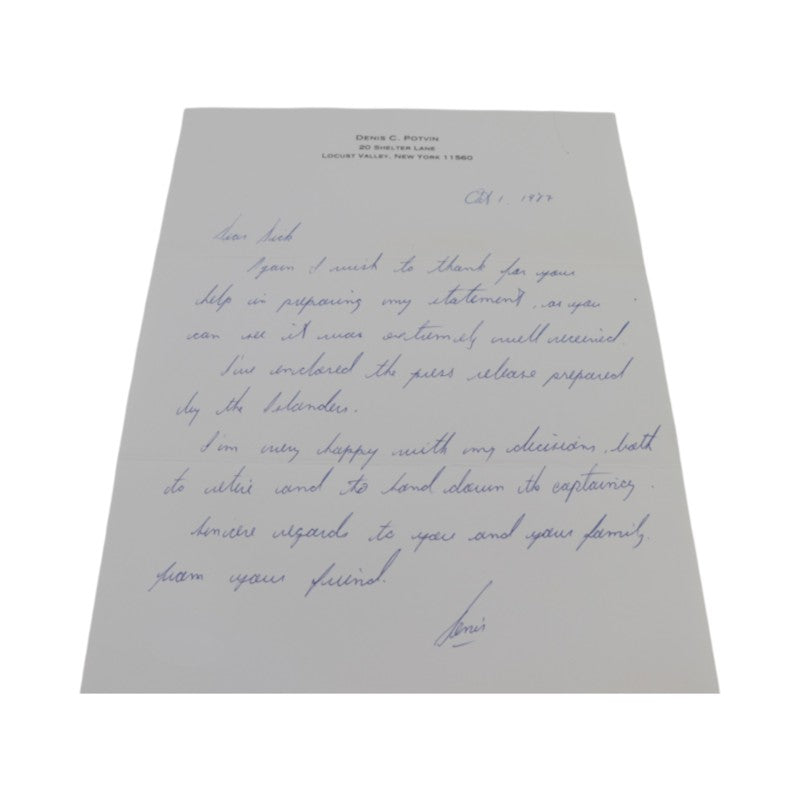 DENIS C. POTVIN
20 SHELTER LANE
LOCUST VALLEY, NEW YORK 11560
Oct 1. 1987
Dear Dick
Again I wish to thank for your
help in preparing my statement, as you
can see it was extremely well received.
I've enclosed the press release prepared
by the Islanders.
I'm very happy with my decisions, both
to retire and to hand down the captaincy.
Sincere regards to you and your family.
from your friend.
Denis